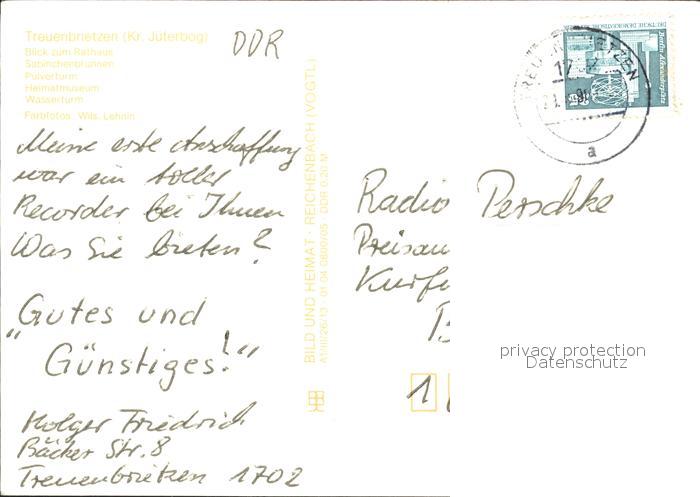 Treuenbrietzen (Kr. Jüterbog)
Blick zum Rathaus
Sabinchenbrunnen
Pulverturm
Heimatmuseum
Wasserturm
Farbfotos: Wils, Lehnin
DDR
Meine erste Anschaffung
war ein toller
Recorder bei Ihnen
Was Sie bieten?
„Gutes und
Günstiges!“
Holger Friedrich
Bäcker Str. 8
Treuenbrietzen 1702
BILD UND HEIMAT · REICHENBACH (VOGTL)
A1/III/26/13 01 04 0600/05 DDR 0,20 M
TREUENBRIETZEN
17
a
Berlin, Alexanderplatz
Radio Perschke
Preisau
Kurfü
B
1
privacy protection
Datenschutz